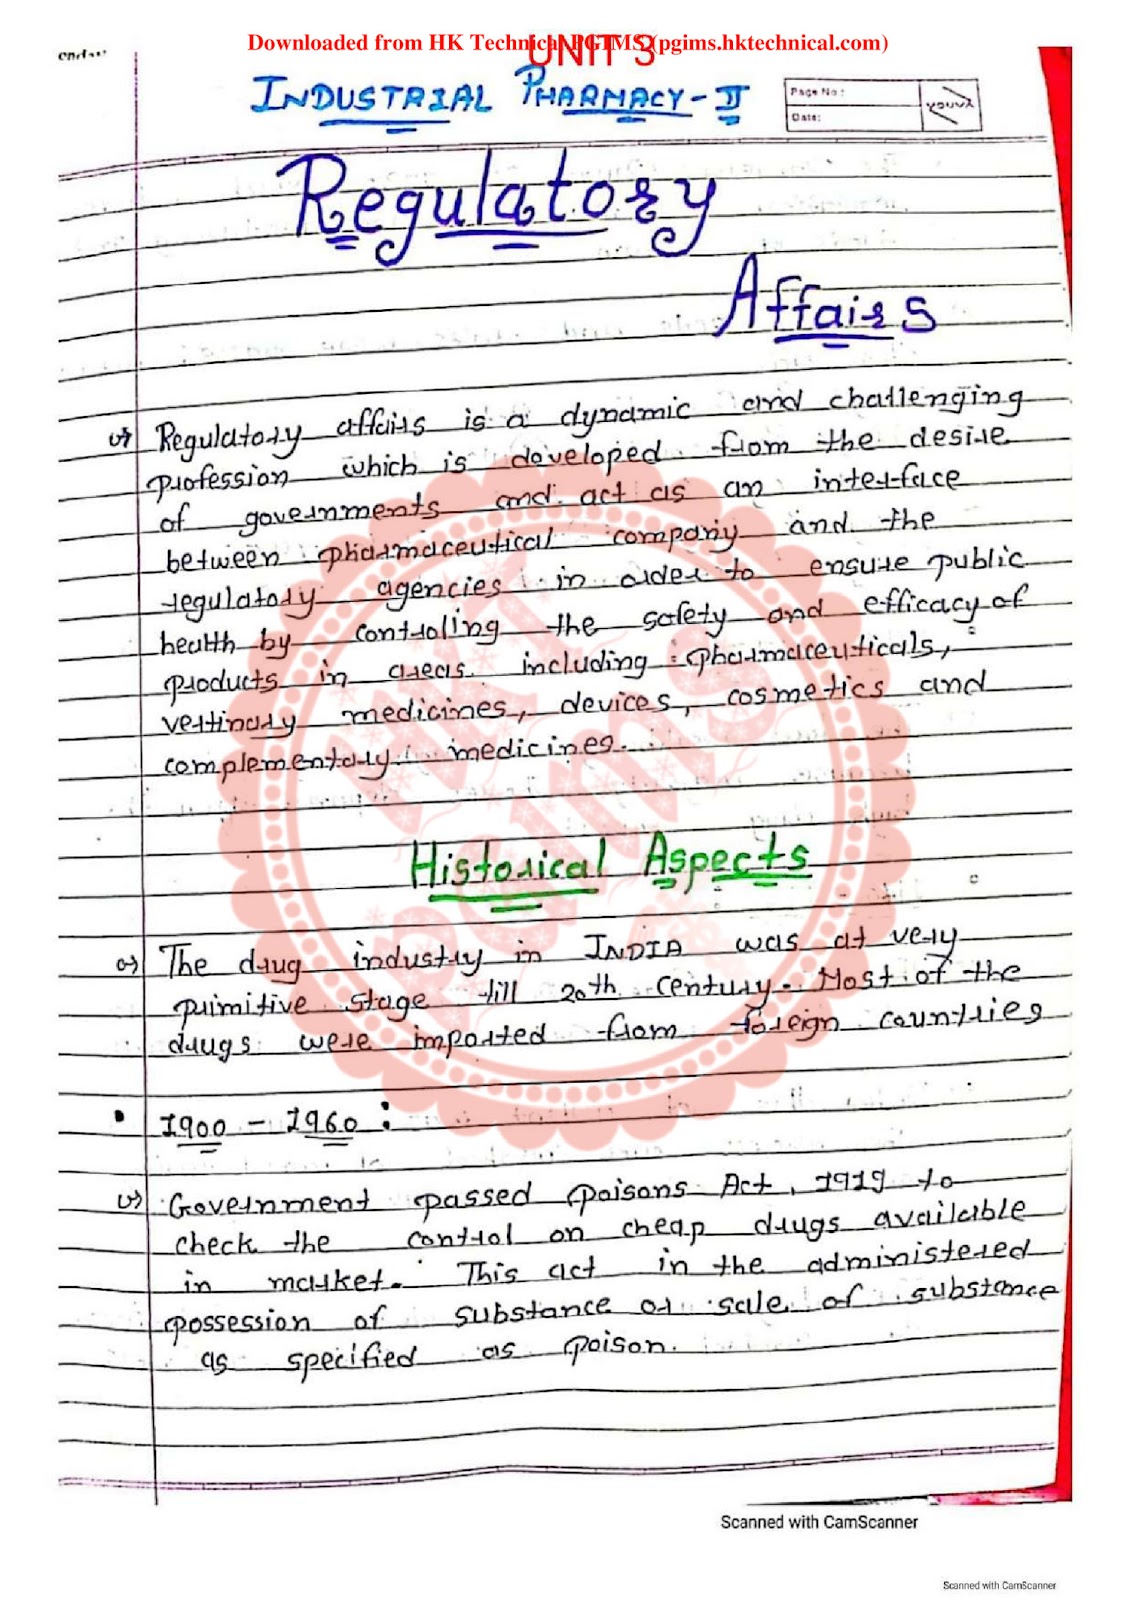 Downloaded from HK Technical PGIMS (pgims.hktechnical.com)
UNIT 3
INDUSTRIAL PHARMACY-II
Page No.:
Date:
YOUVA
Regulatory
Affairs
Regulatory affairs is a dynamic and challenging
profession which is developed from the desire
of governments and act as an interface
between pharmaceutical company and the
regulatory agencies in order to ensure public
health by controling the safety and efficacy of
products in areas including pharmaceuticals,
vertinary medicines, devices, cosmetics and
complementary medicines.
HK
PGIMS
Historical Aspects
The drug industry in INDIA was at very
primitive stage till 20th century. Most of the
drugs were imported from foreign countries
• 1900 - 1960 :
Government passed poisons Act, 1919 to
check the control on cheap drugs available
in market. This act in the administered
possession of substance or sale of substance
as specified as poison.
Scanned with CamScanner
Scanned with CamScanner